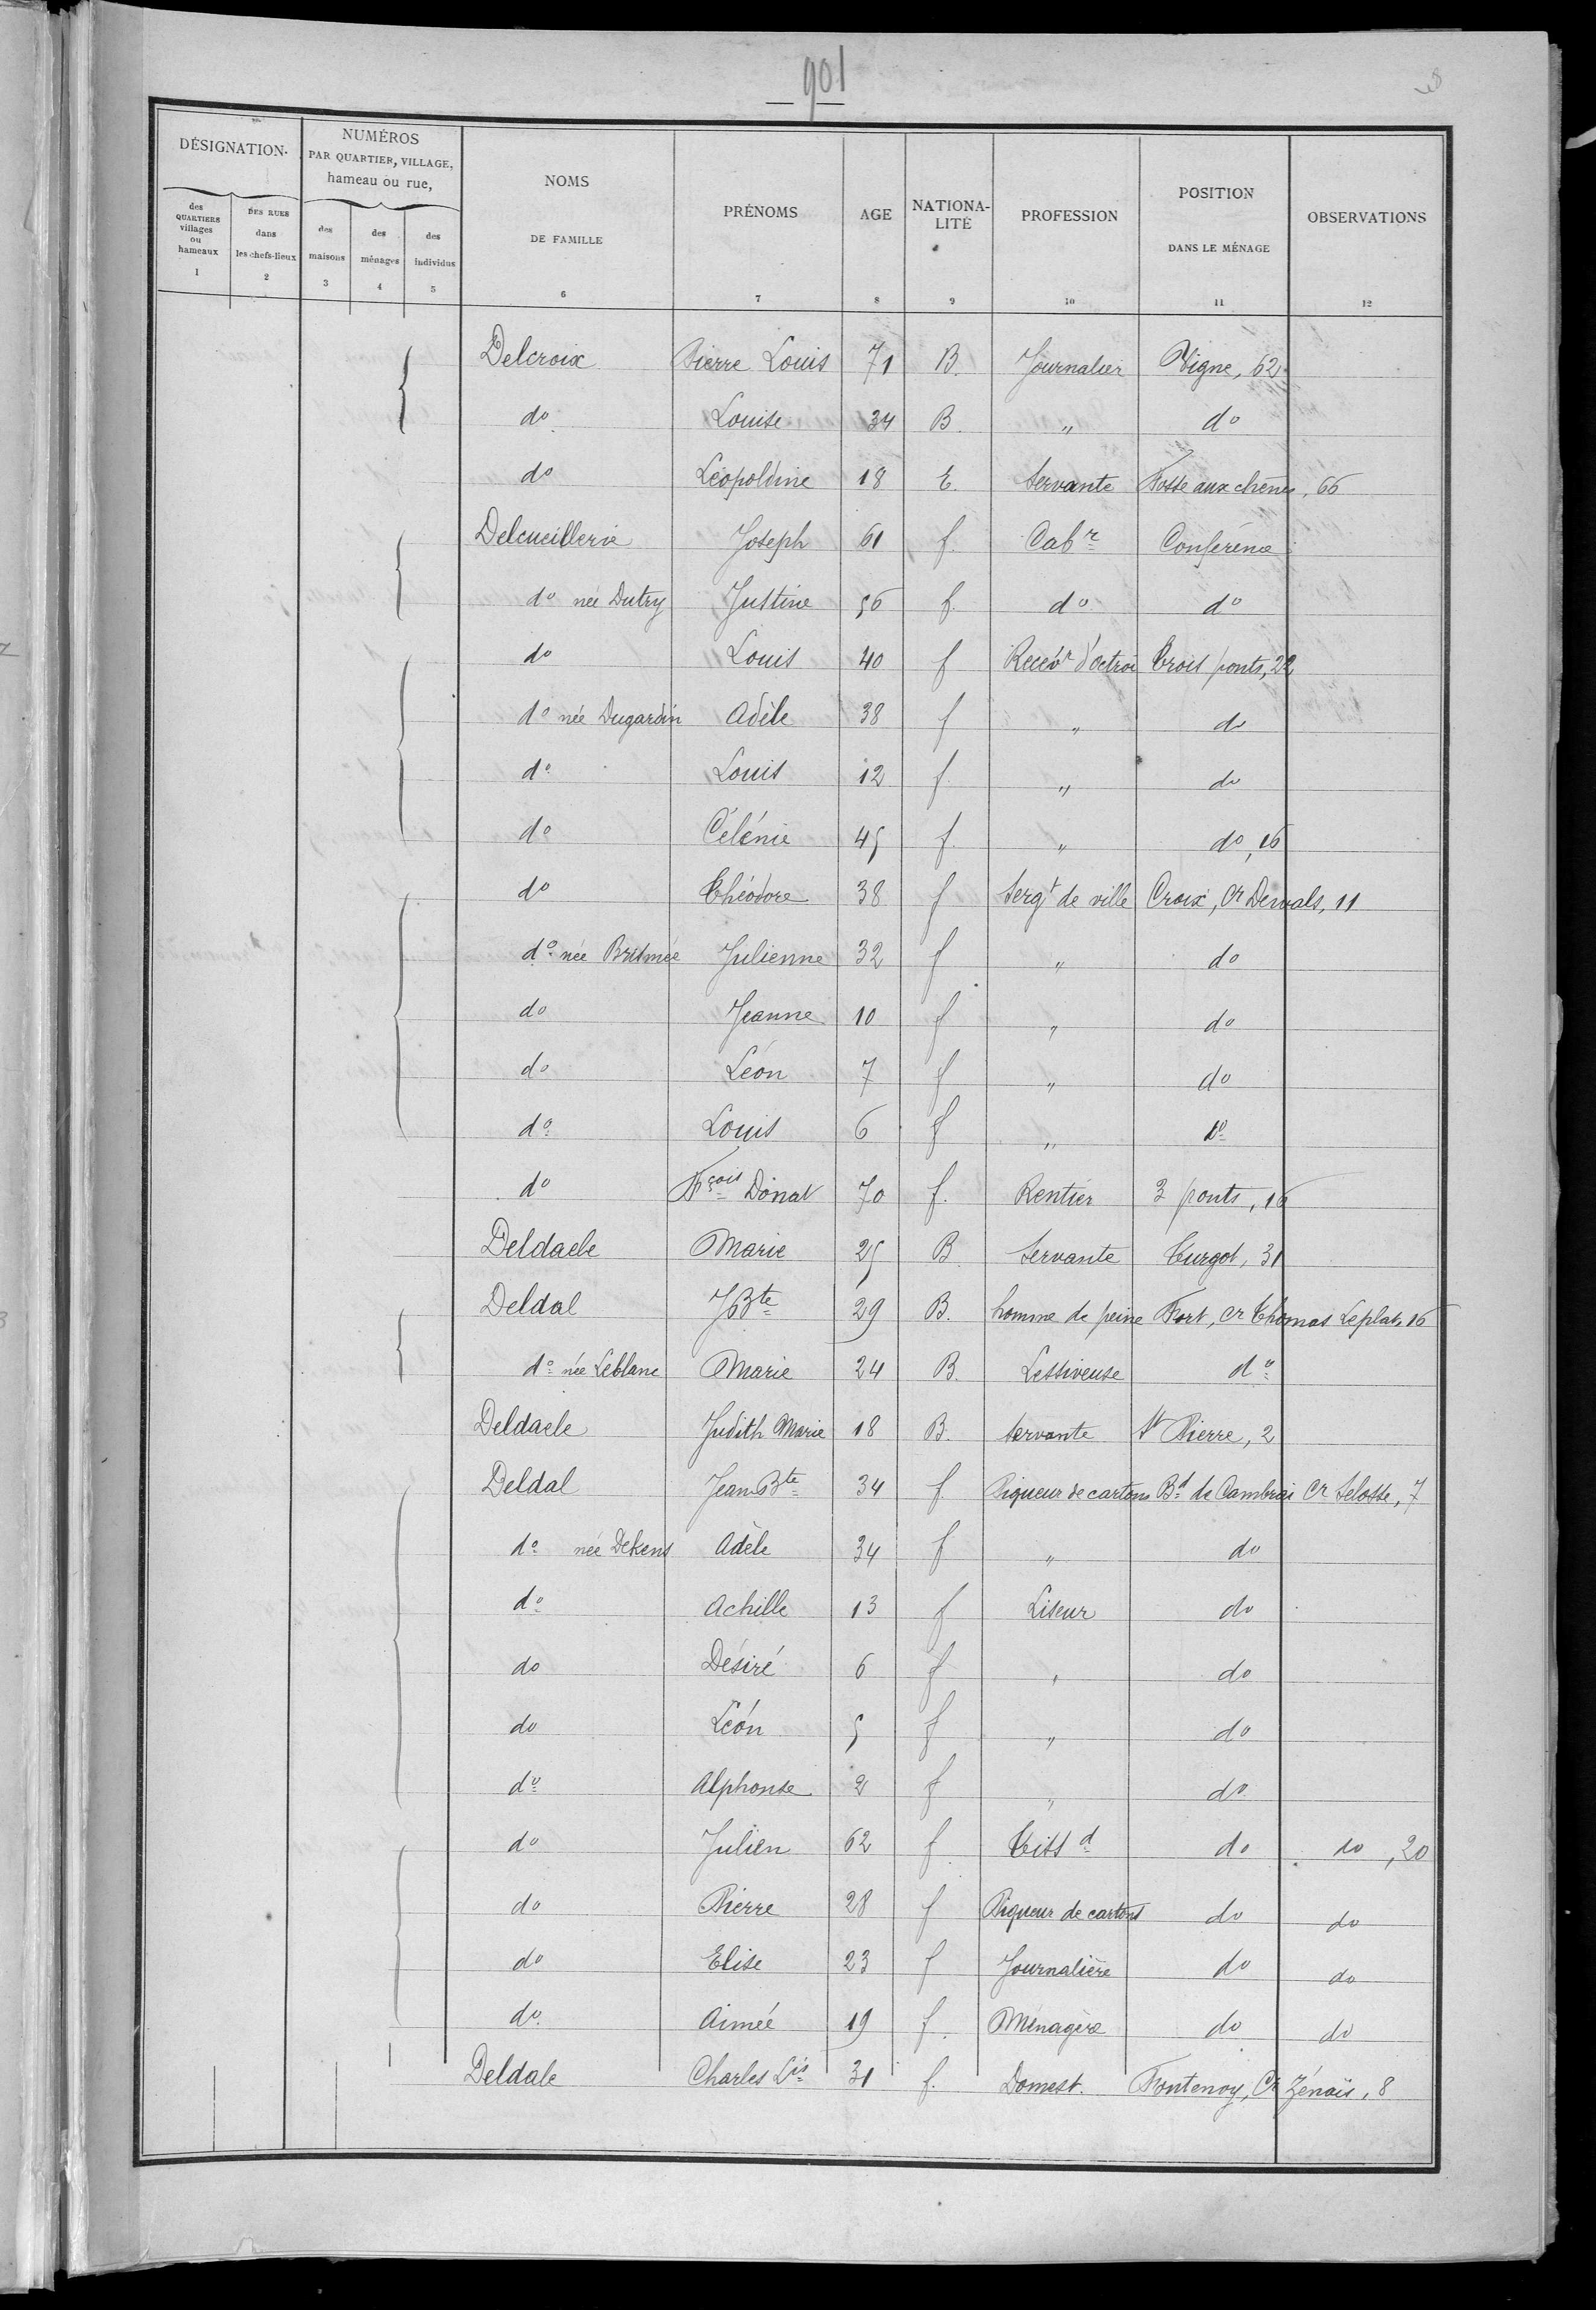 901
DÉSIGNATION
NUMÉROS
PAR QUARTIER, VILLAGE,
hameau ou rue,
des QUARTIERS villages ou hameaux 1
DES RUES dans les chefs-lieux 2
des maisons 3
des ménages 4
des individus 5
NOMS DE FAMILLE 6
PRÉNOMS 7
AGE 8
NATIONA-LITÉ 9
PROFESSION 10
POSITION DANS LE MÉNAGE 11
OBSERVATIONS 12
Delcroix Pierre Louis 71 B. Journalier Vigne, 62
do Louise 34 B. " do
do Léopoldine 18 E. Servante Fosse aux chênes, 66
Delcueillerie Joseph 61 f. Cabr Conférence
do née Dutry Justine 56 f. do do
do Louis 40 f Recevr d'octroi Trois ponts, 22
do née Dugardin Adèle 38 f " do
do Louis 12 f " do
do Célénie 45 f. " do, 16
do Théodore 38 f Sergt de ville Croix, Cr Dewals, 11
do née Brismée Julienne 32 f " do
do Jeanne 10 f " do
do Léon 7 f " do
do Louis 6 f " do
do Fçois Donat 70 f. Rentier 3 ponts, 16
Deldaele Marie 25 B Servante Turgot, 31
Deldal J Bte 29 B. homme de peine Fort, cr Thomas Leplat, 16
do née Leblanc Marie 24 B. Lessiveuse do
Deldaele Judith Marie 18 B. Servante St Pierre, 2
Deldal Jean Bte 34 f. Piqueur de cartons Bd de Cambrai Cr Selosse, 7
do née Dekens Adèle 34 f " do
do Achille 13 f Liseur do
do Désiré 6 f " do
do Léon 5 f " do
do Alphonse 2 f " do
do Julien 62 f Tissd do do, 20
do Pierre 28 f Piqueur de cartons do do
do Elise 23 f Journalière do do
do Aimée 19 f. Ménagère do do
Deldale Charles Ls 31 f. Domest. Fontenoy, Cr Zénaïs, 8